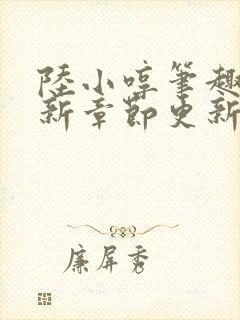 陸小啍筆趣
新章節更新
廉屏秀